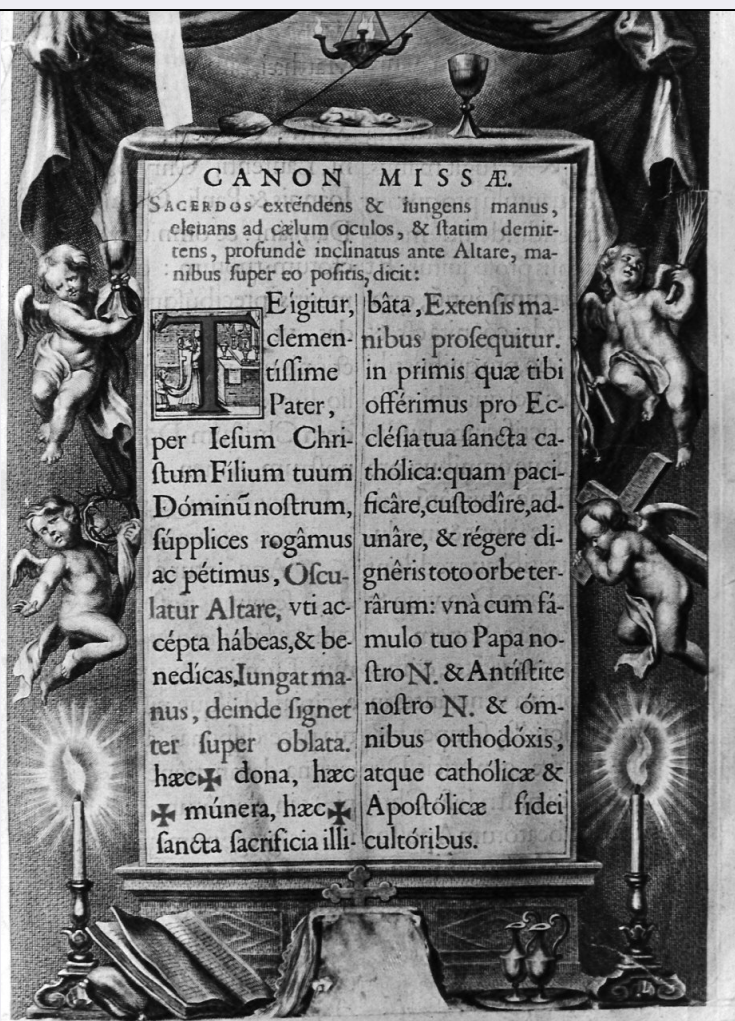 CANON MISSÆ.
SACERDOS exténdens & iungens manus,
eleuans ad cælum oculos, & ſtatim demit-
tens, profundè inclinatus ante Altare, ma-
nibus ſuper eo poſitis, dicit:
TE ígitur,
clemen-
tíſſime
Pater,
per Ieſum Chri-
ſtum Fílium tuum
Dóminũ noſtrum,
ſúpplices rogâmus
ac pétimus, Oſcu-
latur Altare, vti ac-
cépta hábeas, & be-
nedícas, Iungat ma-
nus, deinde ſignet
ter ſuper oblata.
hæc ✠ dona, hæc
✠ múnera, hæc ✠
ſancta ſacrificia illi-
bâta, Extenſis ma-
nibus proſequitur.
in primis quæ tibi
offérimus pro Ec-
cléſia tua ſancta ca-
thólica: quam paci-
ficâre, cuſtodîre, ad-
unâre, & régere di-
gnêris toto orbe ter-
rârum: vnà cum fá-
mulo tuo Papa no-
ſtro N. & Antíſtite
noſtro N. & óm-
nibus orthodóxis,
atque cathólicæ &
Apoſtólicæ fidei
cultóribus.